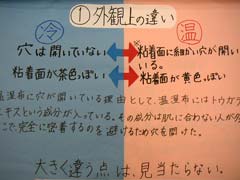 ①外観上の違い
冷
温
穴は開いていない
※粘着面に細かい穴が開いている。
粘着面が茶色っぽい
粘着面が黄色っぽい
温湿布に穴が開いている理由として、温湿布にはトウガラ
エキスという成分が入っている。その成分は肌に合わない人が
こで、完全に密着するのを避けるため穴を開けた。
大きく違う点は、見当たらない。